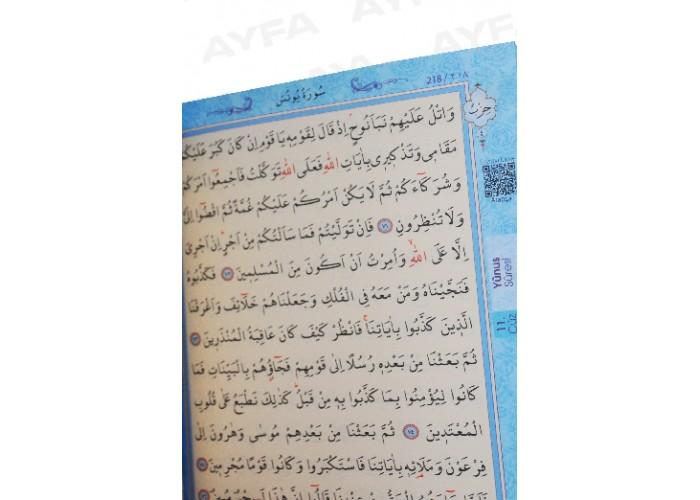 AYFA AYFA AYFA
٢١٨ / 218
سُورَةُ يُونُسَ
حزب
وَاتْلُ عَلَيْهِمْ نَبَاَ نُوحٍ اِذْ قَالَ لِقَوْمِه۪ يَا قَوْمِ اِنْ كَانَ كَبُرَ عَلَيْكُمْ
مَقَام۪ي وَتَذْك۪ير۪ي بِاٰيَاتِ اللّٰهِ فَعَلَى اللّٰهِ تَوَكَّلْتُ فَاَجْمِعُٓوا اَمْرَكُمْ
وَشُرَكَٓاءَكُمْ ثُمَّ لَا يَكُنْ اَمْرُكُمْ عَلَيْكُمْ غُمَّةً ثُمَّ اقْضُٓوا اِلَيَّ
وَلَا تُنْظِرُونِ ٧١ فَاِنْ تَوَلَّيْتُمْ فَمَا سَاَلْتُكُمْ مِنْ اَجْرٍۜ اِنْ اَجْرِيَ
اِلَّا عَلَى اللّٰهِۙ وَاُمِرْتُ اَنْ اَكُونَ مِنَ الْمُسْلِم۪ينَ ٧٢ فَكَذَّبُوهُ
فَنَجَّيْنَاهُ وَمَنْ مَعَهُ فِي الْفُلْكِ وَجَعَلْنَاهُمْ خَلَٓائِفَ وَاَغْرَقْنَا
الَّذ۪ينَ كَذَّبُوا بِاٰيَاتِنَاۚ فَانْظُرْ كَيْفَ كَانَ عَاقِبَةُ الْمُنْذَر۪ينَ ٧٣
ثُمَّ بَعَثْنَا مِنْ بَعْدِه۪ رُسُلًا اِلٰى قَوْمِهِمْ فَجَٓاؤُ۫هُمْ بِالْبَيِّنَاتِ فَمَا
كَانُوا لِيُؤْمِنُوا بِمَا كَذَّبُوا بِه۪ مِنْ قَبْلُۜ كَذٰلِكَ نَطْبَعُ عَلٰى قُلُوبِ
الْمُعْتَد۪ينَ ٧٤ ثُمَّ بَعَثْنَا مِنْ بَعْدِهِمْ مُوسٰى وَهٰرُونَ اِلٰى
فِرْعَوْنَ وَمَلَا۬ئِه۪ بِاٰيَاتِنَا فَاسْتَكْبَرُوا وَكَانُوا قَوْمًا مُجْرِم۪ينَ ٧٥
Yûnus
Sûresi
11.
Cüz